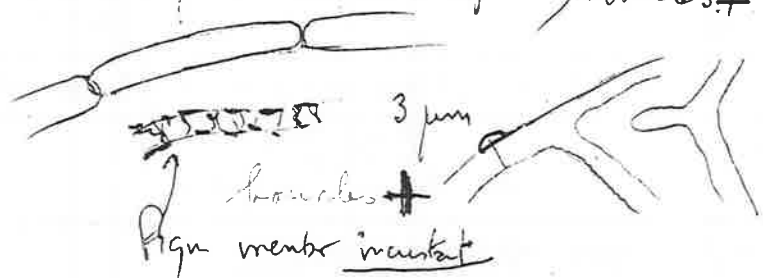 3 µm
boucles +
Pigm membr incrustant